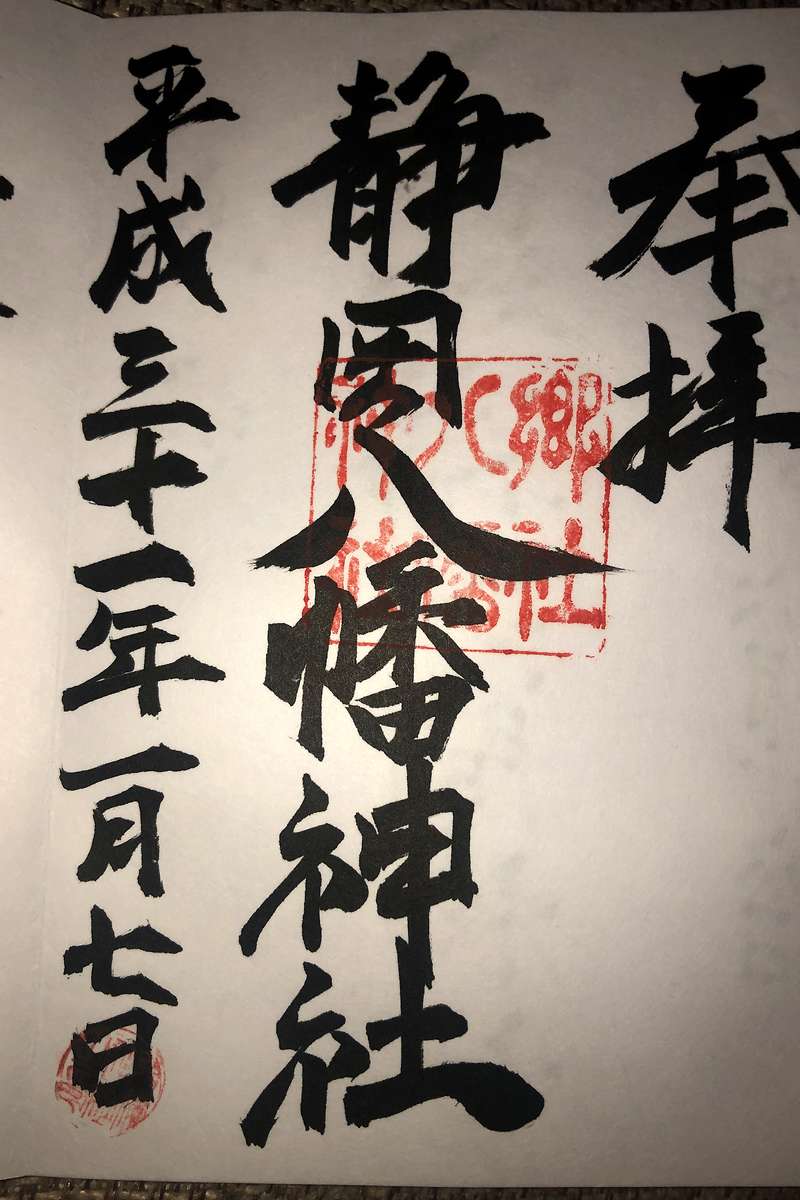 奉拝
静岡八幡神社
平成三十一年一月七日